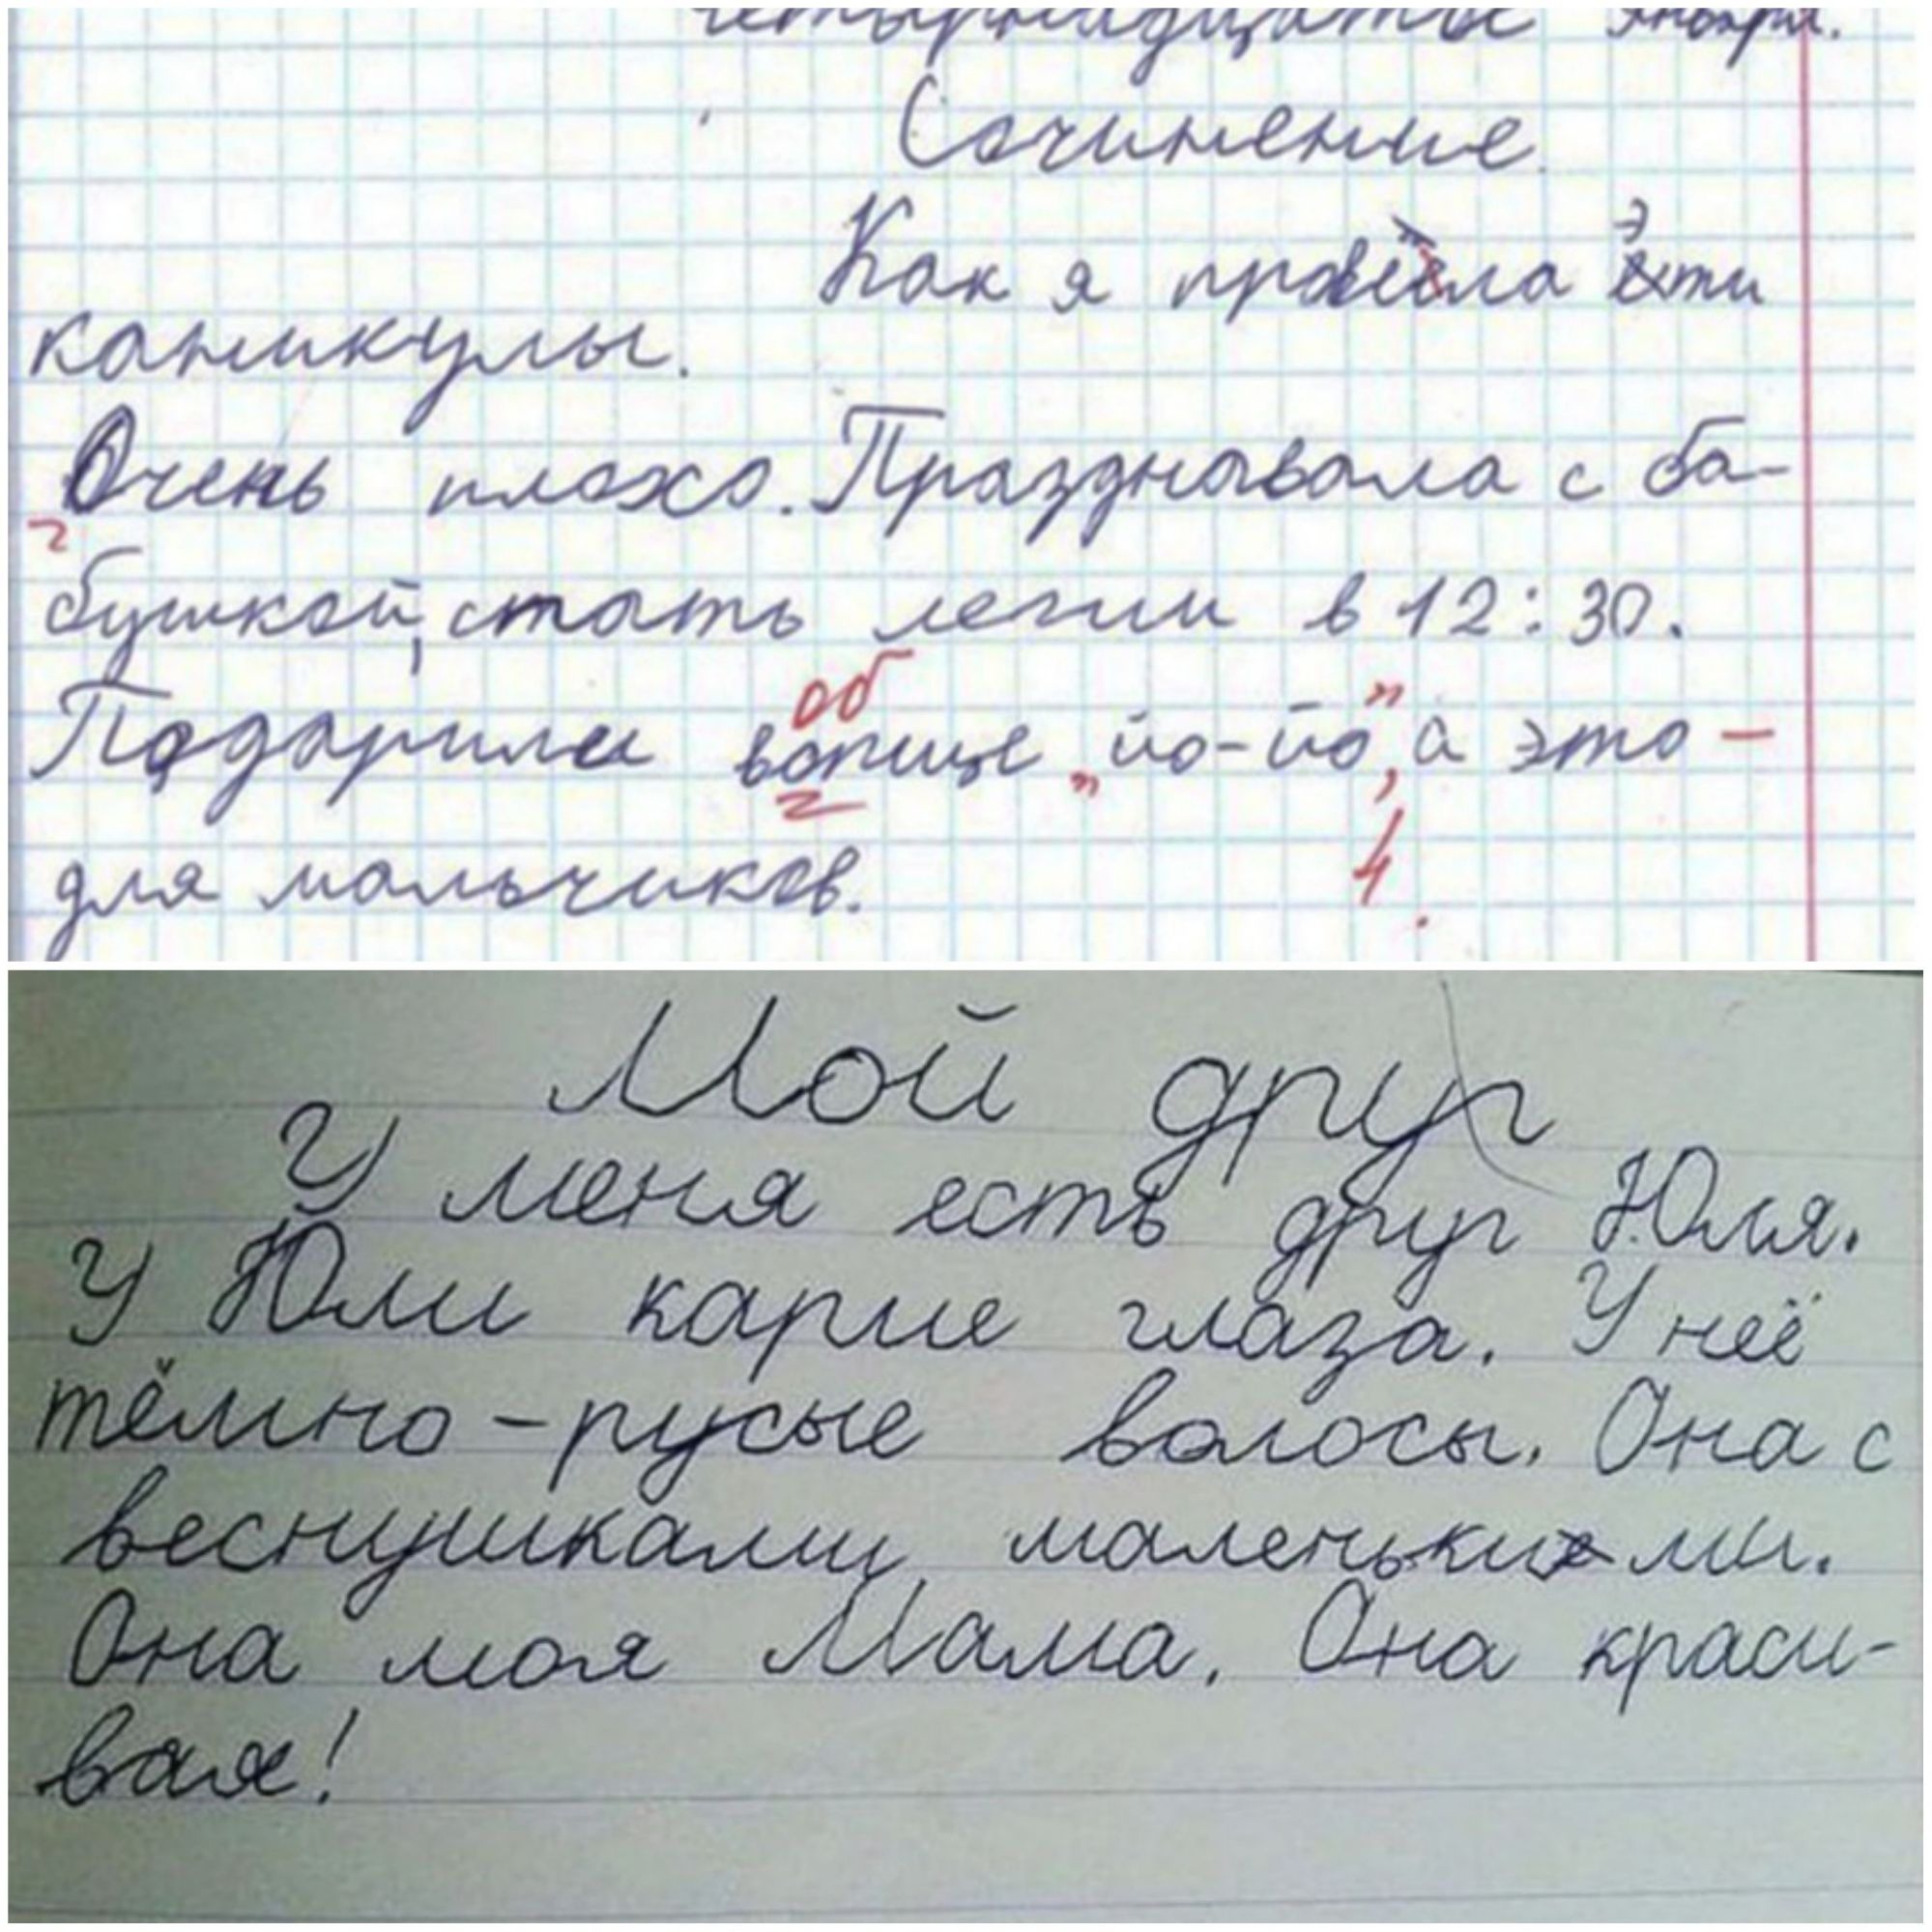 четырнадцатое января.
Сочинение.
Как я провела эти
каникулы.
Очень плохо. Праздновала с ба-
бушкой, стать легли в 12:30.
Подарили вопще „йо-йо", а это –
об
для мальчиков.
4.
Мой друг
У меня есть друг Юля.
У Юли карие глаза. У неё
тёмно-русые волосы. Она с
веснушками маленькими.
Она моя Мама. Она краси-
вая!